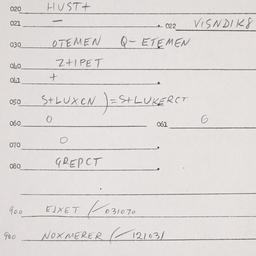 020 HUST+
021 — . 022 VISNDIK8
030 OTEMEN Q-ETEMEN
040 Z+IPET
041 +
050 S+LUXCN )=S+LUKERCT
060 0 061 0
070 0
080 GREPCT
900 EJXET /031070
900 NOXMERER /12103/